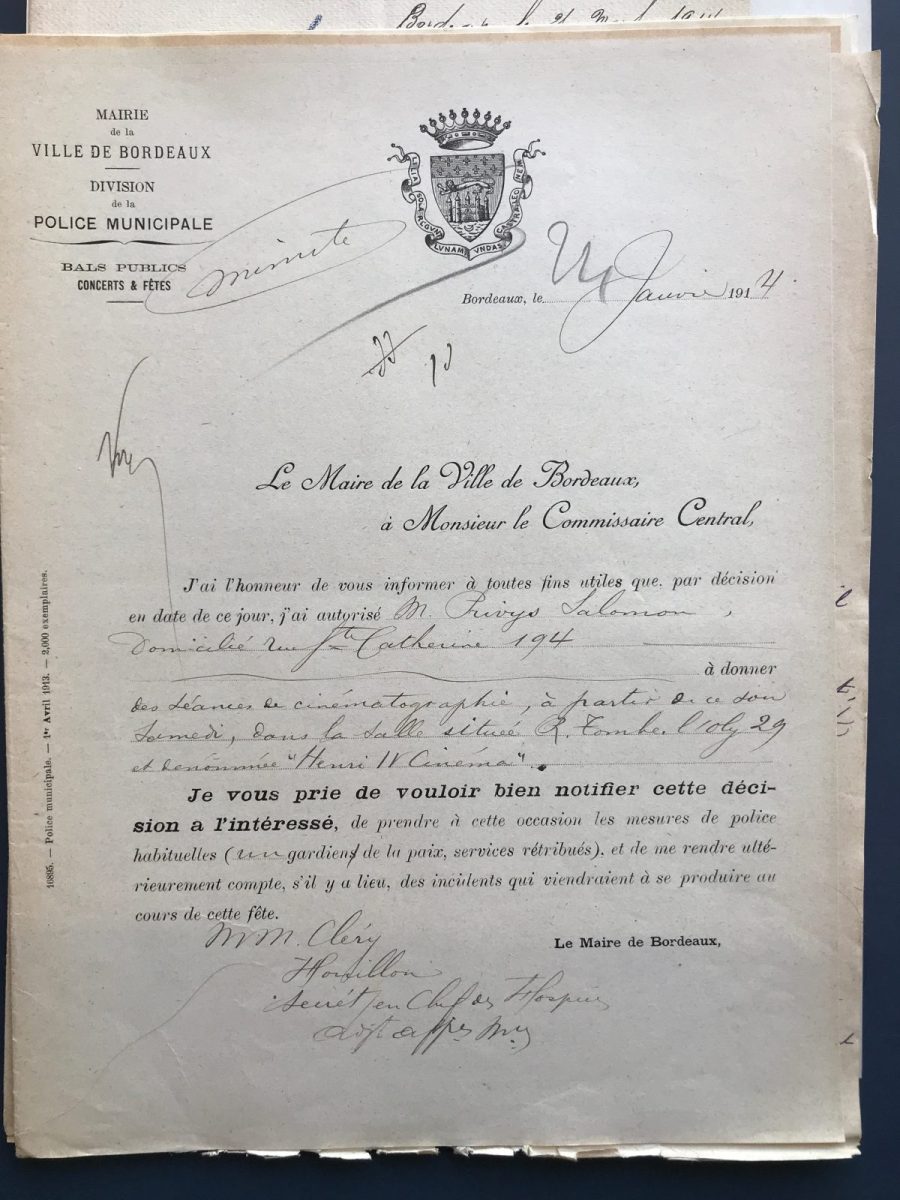 MAIRIE
de la
VILLE DE BORDEAUX
DIVISION
de la
POLICE MUNICIPALE
BALS PUBLICS
CONCERTS & FÊTES
minute
LILIA SOLA REGVNT LVNAM VNDAS CASTRA LEONEM
Bordeaux, le 24 Janvier 1914
Le Maire de la Ville de Bordeaux,
à Monsieur le Commissaire Central,
J'ai l'honneur de vous informer à toutes fins utiles que, par décision
en date de ce jour, j'ai autorisé M. Privys Salomon,
domicilié rue Ste Catherine 194
à donner
des séances de cinématographie, à partir de ce soir
Samedi, dans la salle située R. Tombe l'Oly 29
et dénommée "Henri IV Cinéma".
Je vous prie de vouloir bien notifier cette déci-
sion a l'intéressé, de prendre à cette occasion les mesures de police
habituelles (un gardiens de la paix, services rétribués), et de me rendre ulté-
rieurement compte, s'il y a lieu, des incidents qui viendraient à se produire au
cours de cette fête.
Le Maire de Bordeaux,
MM. Cléry
Secrét en Chef des Hospices
10895. — Police municipale. — 1er Avril 1913. — 2,000 exemplaires.